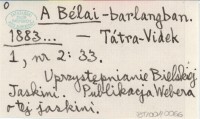 0
A Bélai-barlangban.
1883... — Tátra-Vidék
1, nr 2: 33.
Uprzystępnianie Bielskiej
Jaskini. Publikacja Webera
o tej jaskini.